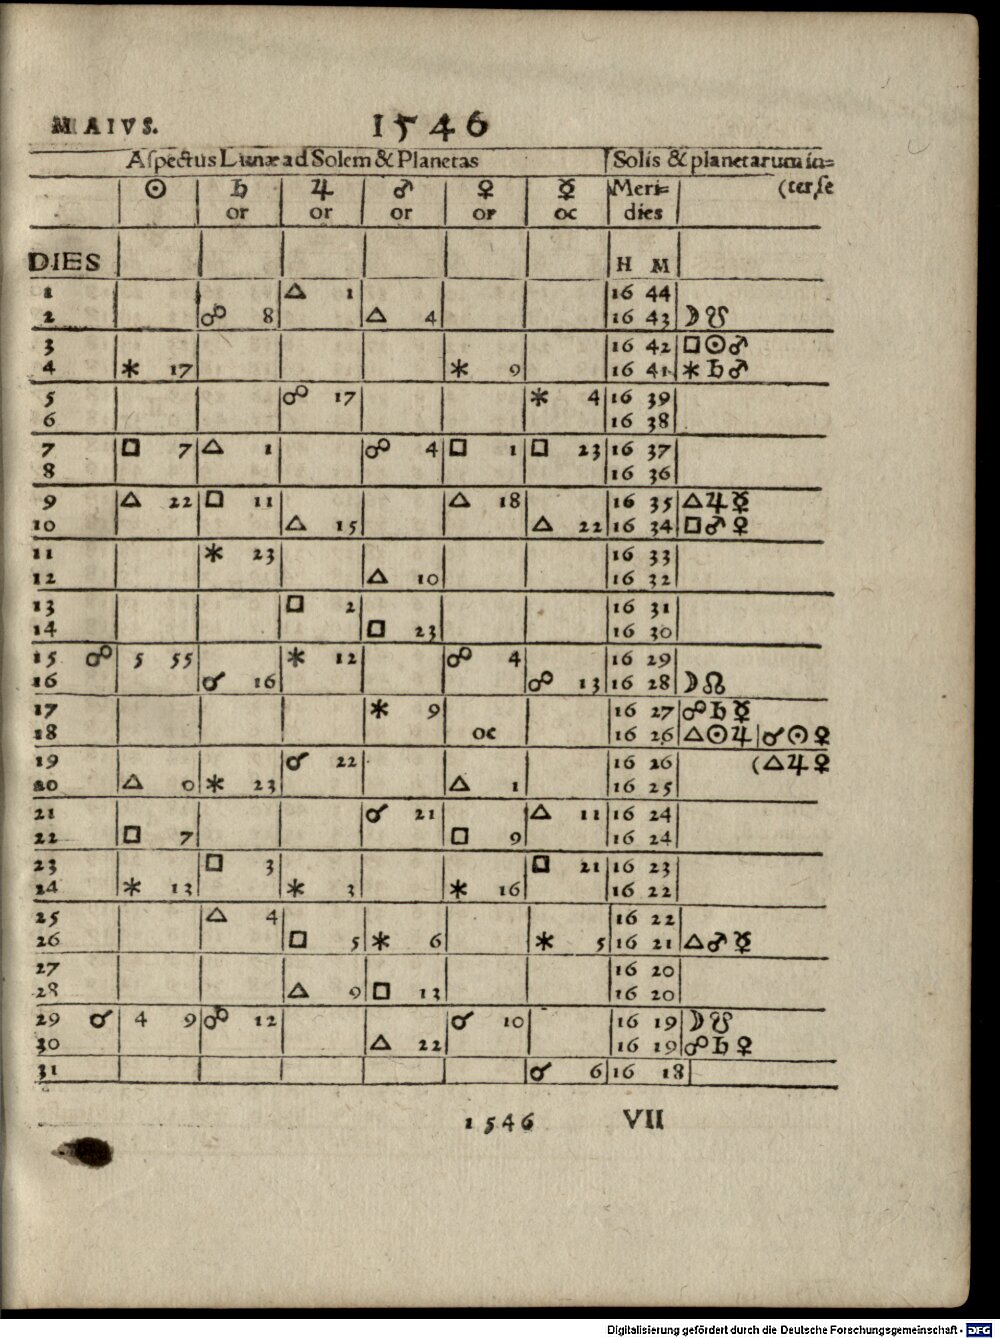 MAIVS. 1546
Aſpectus Lunæ ad Solem & Planetas Solis & planetarum in=
☉ ♄ ♃ ♂ ♀ ☿ Meri= (ter ſe
or or or or oc dies
DIES H M
1 △ 1 16 44
2 ☍ 8 △ 4 16 43 ☽ ☋
3 16 42 □ ☉ ♂
4 ⚹ 17 ⚹ 9 16 41 ⚹ ♄ ♂
5 ☍ 17 ⚹ 4 16 39
6 16 38
7 □ 7 △ 1 ☍ 4 □ 1 □ 23 16 37
8 16 36
9 △ 22 □ 11 △ 18 16 35 △ ♃ ☿
10 △ 15 △ 22 16 34 □ ♂ ♀
11 ⚹ 23 16 33
12 △ 10 16 32
13 □ 2 16 31
14 □ 23 16 30
15 ☍ 5 55 ⚹ 12 ☍ 4 16 29
16 ☌ 16 ☍ 13 16 28 ☽ ☊
17 ⚹ 9 16 27 ☍ ♄ ☿
18 oc 16 26 △ ☉ ♃ | ☌ ☉ ♀
19 ☌ 22 16 26 (△ ♃ ♀
20 △ 0 ⚹ 23 △ 1 16 25
21 ☌ 21 △ 11 16 24
22 □ 7 □ 9 16 24
23 □ 3 □ 21 16 23
24 ⚹ 13 ⚹ 3 ⚹ 16 16 22
25 △ 4 16 22
26 □ 5 ⚹ 6 ⚹ 5 16 21 △ ♂ ☿
27 16 20
28 △ 9 □ 13 16 20
29 ☌ 4 9 ☍ 12 ☌ 10 16 19 ☽ ☋
30 △ 22 16 19 ☍ ♄ ♀
31 ☌ 6 16 18
1546 VII
Digitalisierung gefördert durch die Deutsche Forschungsgemeinschaft - DFG